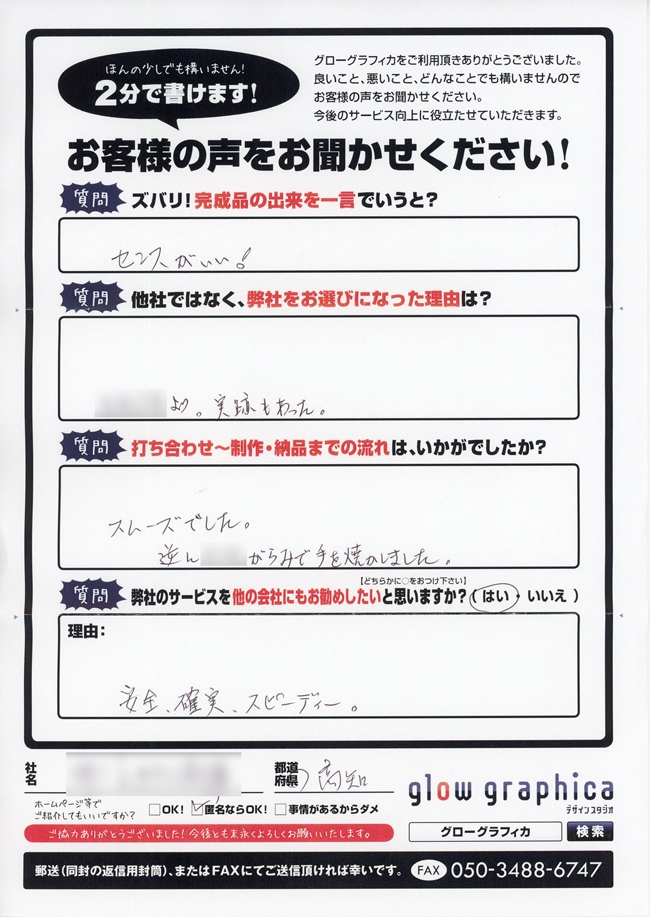 ほんの少しでも構いません!
2分で書けます!
グローグラフィカをご利用頂きありがとうございました。
良いこと、悪いこと、どんなことでも構いませんので
お客様の声をお聞かせください。
今後のサービス向上に役立たせていただきます。
お客様の声をお聞かせください!
質問 ズバリ!完成品の出来を一言でいうと?
センスがいい!
質問 他社ではなく、弊社をお選びになった理由は?
より。実跡もあった。
質問 打ち合わせ〜制作・納品までの流れは、いかがでしたか?
スムーズでした。
逆に がらみで手を焼かしました。
【どちらかに○をおつけ下さい】
質問 弊社のサービスを他の会社にもお勧めしたいと思いますか?(はい・いいえ)
理由:
安全、確実、スピーディー。
社名 都道府県 高知
ホームページ等でご紹介してもいいですか? □OK! ☑匿名ならOK! □事情があるからダメ
ご協力ありがとうございました!今後とも末永くよろしくお願いいたします。
glow graphica
デザインスタジオ
グローグラフィカ 検索
郵送(同封の返信用封筒)、またはFAXにてご送信頂ければ幸いです。 FAX 050-3488-6747